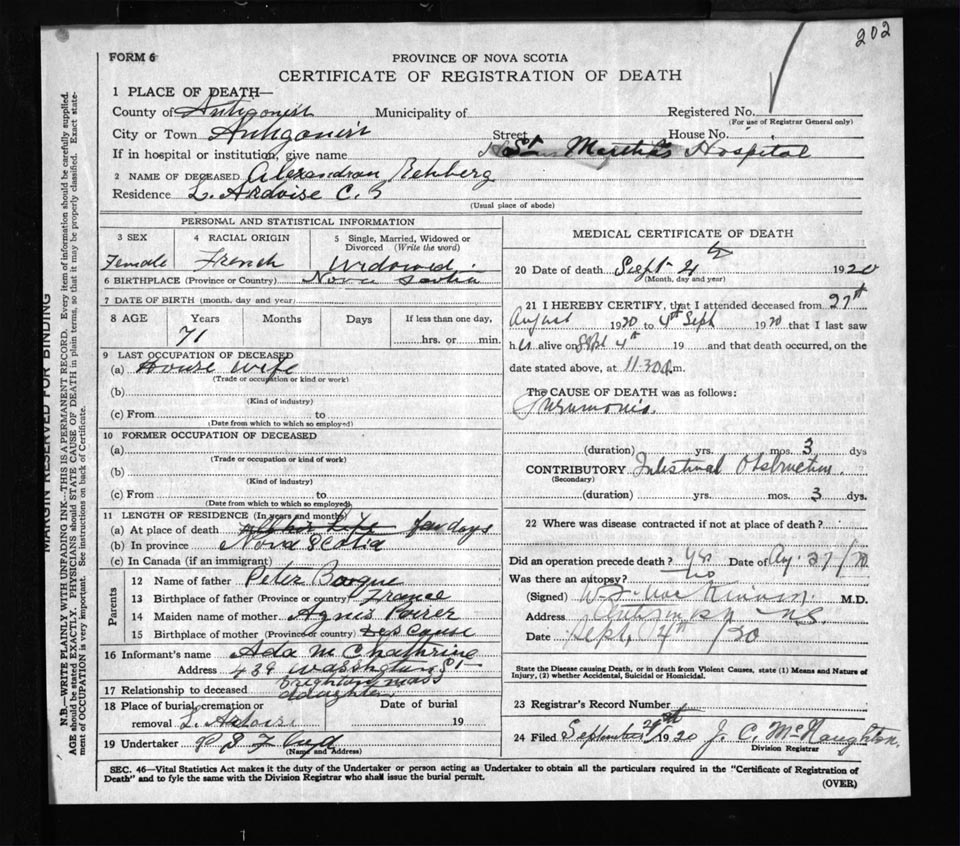 202
FORM 6
PROVINCE OF NOVA SCOTIA
CERTIFICATE OF REGISTRATION OF DEATH
1 PLACE OF DEATH—
County of Antigonish Municipality of Registered No.
(For use of Registrar General only)
City or Town Antigonish Street House No.
If in hospital or institution, give name St. Martha's Hospital
2 NAME OF DECEASED Alexandran Rehberg
Residence L. Ardoise C. B
(Usual place of abode)
PERSONAL AND STATISTICAL INFORMATION
3 SEX 4 RACIAL ORIGIN 5 Single, Married, Widowed or Divorced (Write the word)
Female French Widowed
6 BIRTHPLACE (Province or Country) Nova Scotia
7 DATE OF BIRTH (month, day and year)
8 AGE Years Months Days If less than one day,
71 hrs. or min.
9 LAST OCCUPATION OF DECEASED
(a) House wife
(Trade or occupation or kind or work)
(b)
(Kind of industry)
(c) From to
(Date from which to which so employed)
10 FORMER OCCUPATION OF DECEASED
(a)
(Trade or occupation or kind of work)
(b)
(Kind of industry)
(c) From to
(Date from which to which so employed)
11 LENGTH OF RESIDENCE (In years and months)
(a) At place of death few days
(b) In province Nova Scotia
(c) In Canada (if an immigrant)
Parents
12 Name of father Peter
13 Birthplace of father (Province or country) France
14 Maiden name of mother Agnes Poirer
15 Birthplace of mother (Province or country)
16 Informant's name Ada McChathrine
Address 439 Washington St
Brighton Mass
17 Relationship to deceased daughter
18 Place of burial, cremation or removal L. Ardoise Date of burial 19
19 Undertaker
(Name and Address)
MEDICAL CERTIFICATE OF DEATH
20 Date of death Sept 4 1920
(Month, day and year)
21 I HEREBY CERTIFY, that I attended deceased from 27th
August 1920 to 4th Sept 1920 that I last saw
h er alive on Sept 4th 19 and that death occurred, on the
date stated above, at 11.30 m.
The CAUSE OF DEATH was as follows:
Pneumonia
(duration) yrs. mos. 3 dys
CONTRIBUTORY Intestinal Obstruction
(Secondary)
(duration) yrs. mos. 3 dys.
22 Where was disease contracted if not at place of death?
Did an operation precede death? yes Date of Aug 27/
Was there an autopsy? no
(Signed) M.D.
Address Antigonish NS
Date Sept 4th
State the Disease causing Death, or in death from Violent Causes, state (1) Means and Nature of
Injury, (2) whether Accidental, Suicidal or Homicidal.
23 Registrar's Record Number
24 Filed September 1920 J. C. McNaughton
Division Registrar
SEC. 46—Vital Statistics Act makes it the duty of the Undertaker or person acting as Undertaker to obtain all the particulars required in the "Certificate of Registration of
Death" and to fyle the same with the Division Registrar who shall issue the burial permit.
(OVER)
MARGIN RESERVED FOR BINDING
N.B.—WRITE PLAINLY WITH UNFADING INK—THIS IS A PERMANENT RECORD. Every item of information should be carefully supplied.
AGE should be stated EXACTLY. PHYSICIANS should STATE CAUSE OF DEATH in plain terms, so that it may be properly classified. Exact state-
ment of OCCUPATION is very important. See instructions on back of Certificate.